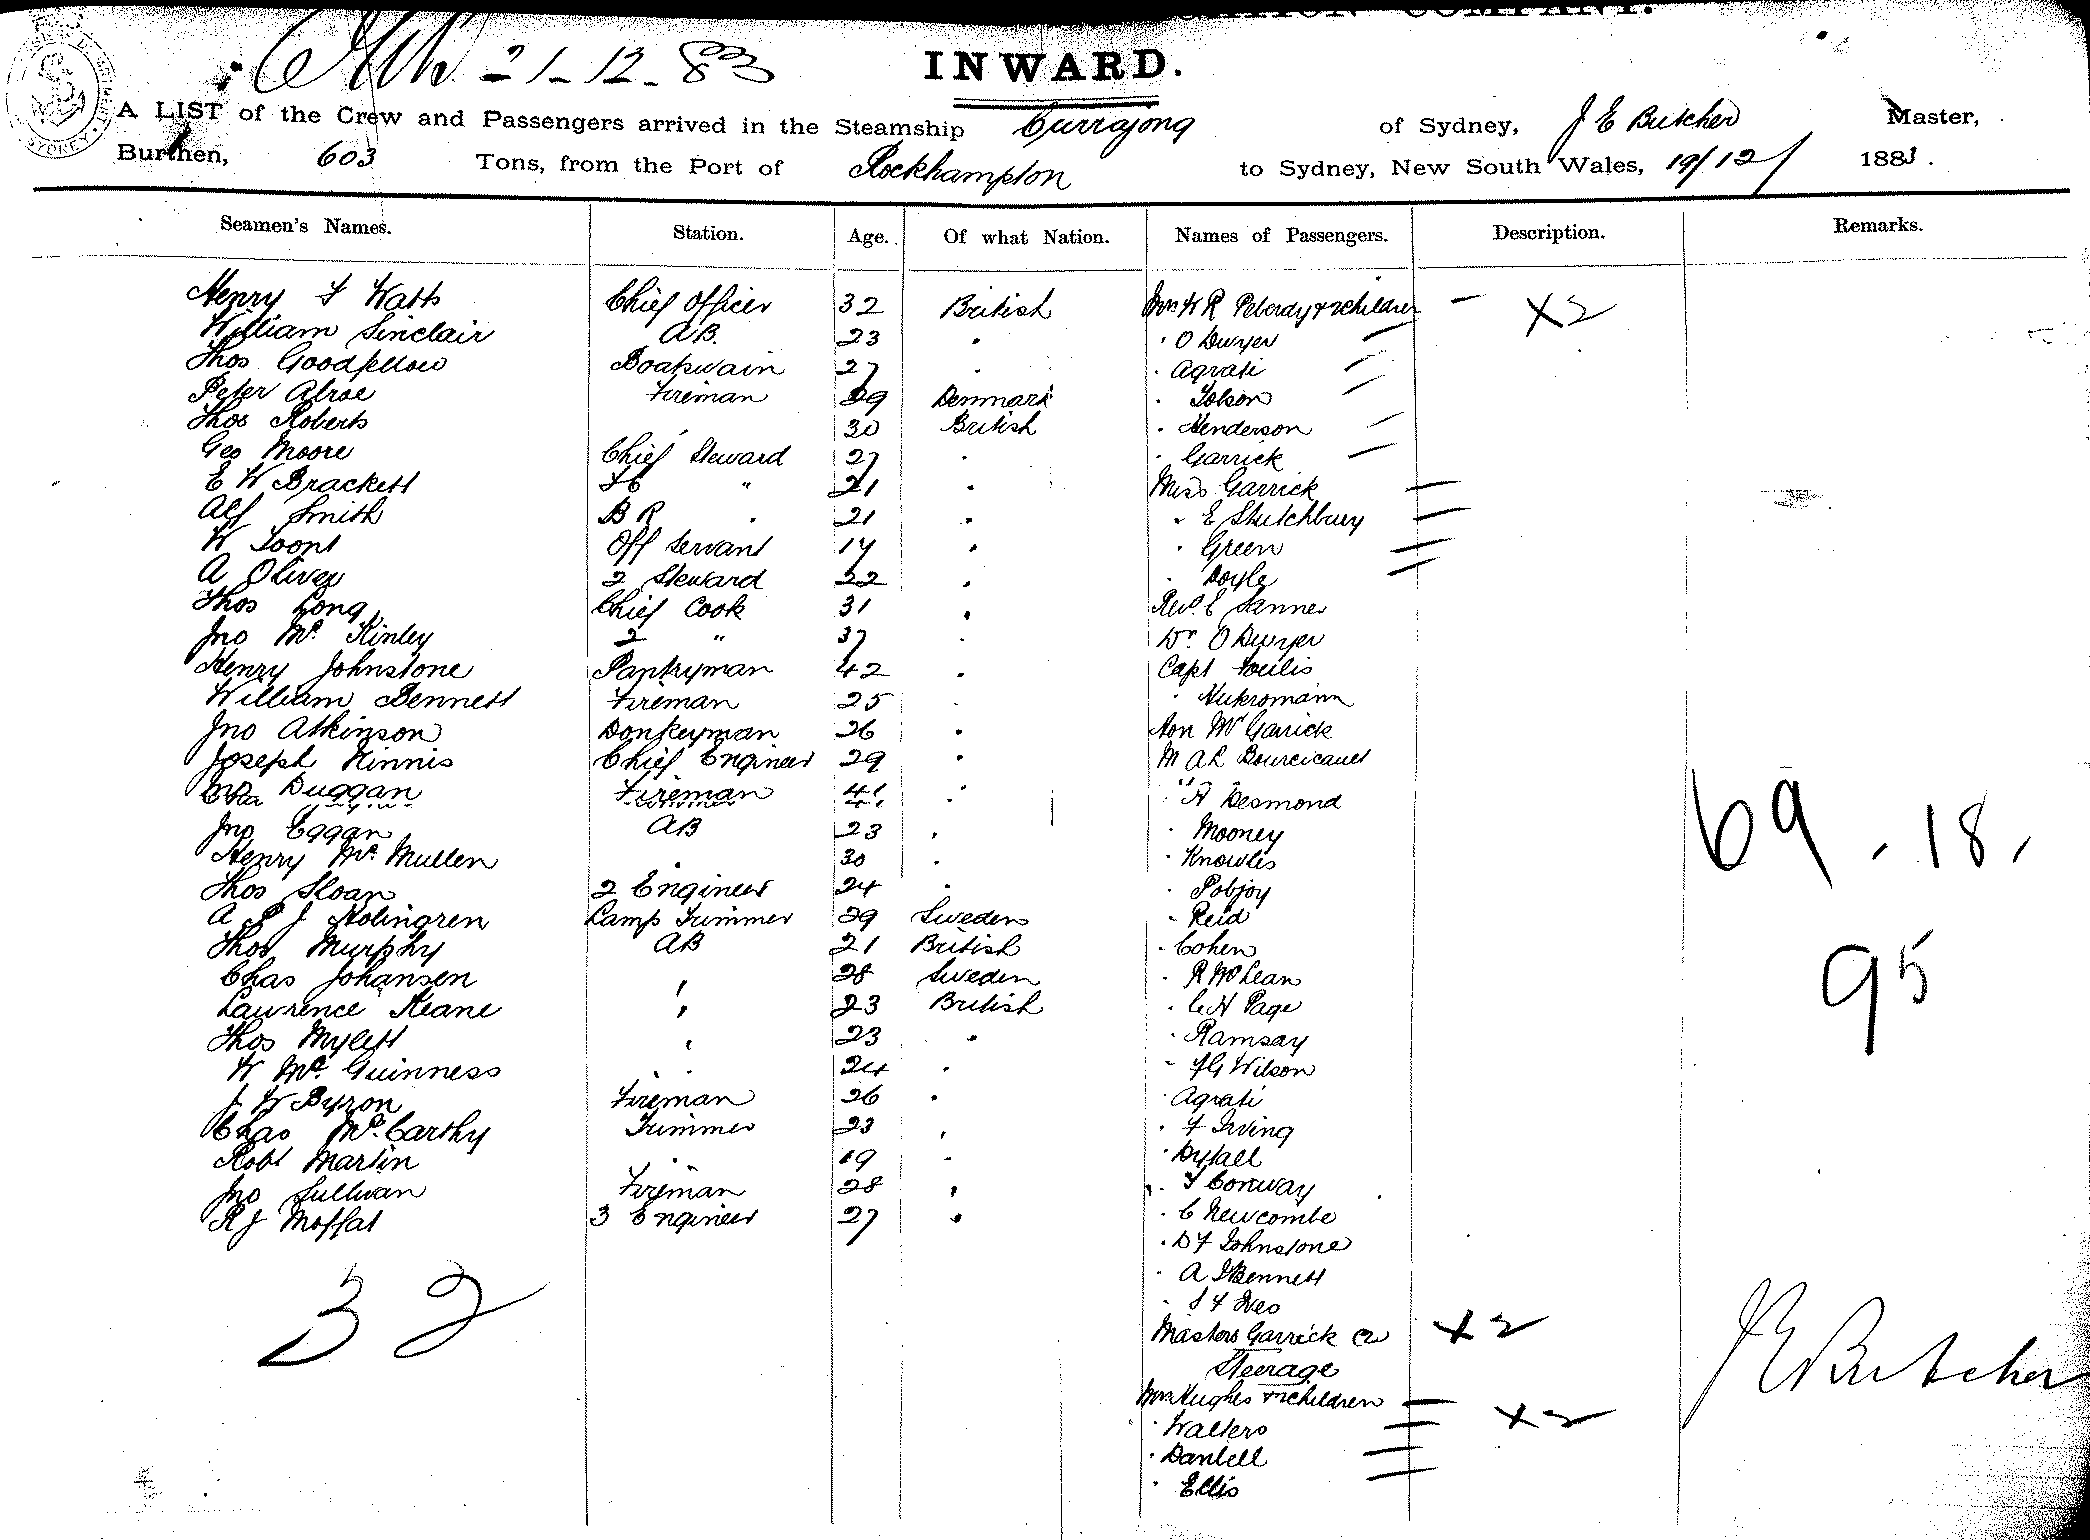 21-12-83
INWARD.
A LIST of the Crew and Passengers arrived in the Steamship Currajong of Sydney, J E Butcher Master,
Burthen, 603 Tons, from the Port of Rockhampton to Sydney, New South Wales, 19/12/ 1883.
Seamen's Names. Station. Age. Of what Nation. Names of Passengers. Description. Remarks.
Henry F Watts Chief Officer 32 British Mrs W R Peberdy + 2 children — X2
William Sinclair AB. 23 " " O Dwyer —
Thos Goodfellow Boatswain 27 " " Agrati —
Peter Alroe Fireman 29 Denmark " Tolson —
Thos Roberts " 30 British " Henderson —
Geo Moore Chief Steward 27 " " Garrick —
E W Brackett " 21 " Miss Garrick —
Alf Smith B R " 21 " " E Stutchbury —
W Toont Off Servant 14 " " Green —
A Oliver 2 Steward 22 " " Doyle —
Thos Long Chief Cook 31 " Revd. E Tanner
Jno Mc Kinley 2 " 37 " Dr O Dwyer
Henry Johnstone Pantryman 42 " Capt
William Bennett Fireman 25 "
Jno Atkinson Donkeyman 26 " Hon Mr Garrick
Joseph Kinnis Chief Engineer 29 " M A R Bourcicault
Jno Duggan Fireman 41 " " A Desmond
Jno Eggan AB 23 " " Mooney
Henry Mc Mullen " 30 " " Knowles
Thos Sloan 2 Engineer 24 " " Pobjoy
A P J Holingren Lamp Trimmer 29 Sweden " Reid
Thos Murphy AB 21 British " Cohen
Chas Johansen " 28 Sweden " R McLean
Lawrence Keane " 23 British " C H Page
Thos Mylett " 23 " " Ramsay
W Mc Guinness " 24 " " F G Wilson
J W Byron Fireman 26 " " Agrati
Chas McCarthy Trimmer 23 " " F Irving
Robt Martin " 19 " " Dyball
Jno Sullivan Fireman 28 " " F Conway
R J Moffat 3 Engineer 27 " " C Newcombe
" D F Johnstone
" A J Bennett
32
Masters Garrick (2) X2
Steerage
Mrs Hughes + 2 children — X2
" Walters —
" Dantell —
" Ellis
69 . 18 .
95
J E Butcher